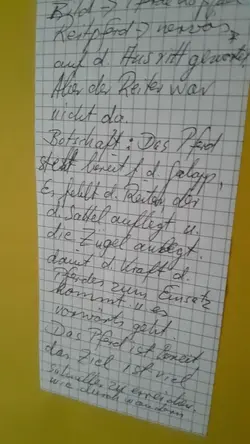 Bild →
Reitpferd → nervös,
auf d. Ausritt gewartet,
Aber der Reiter war
nicht da.
Botschaft: Das Pferd
steht bereit f. d. Galopp,
Es fehlt d. Reiter, der
d. Sattel auflegt u.
die Zügel anlegt.
damit d. Kraft d.
Pferdes zum Einsatz
kommt u. es
vorwärts geht
Das Pferd ist bereit
das Ziel ist viel
schneller zu erreichen,
wie durch